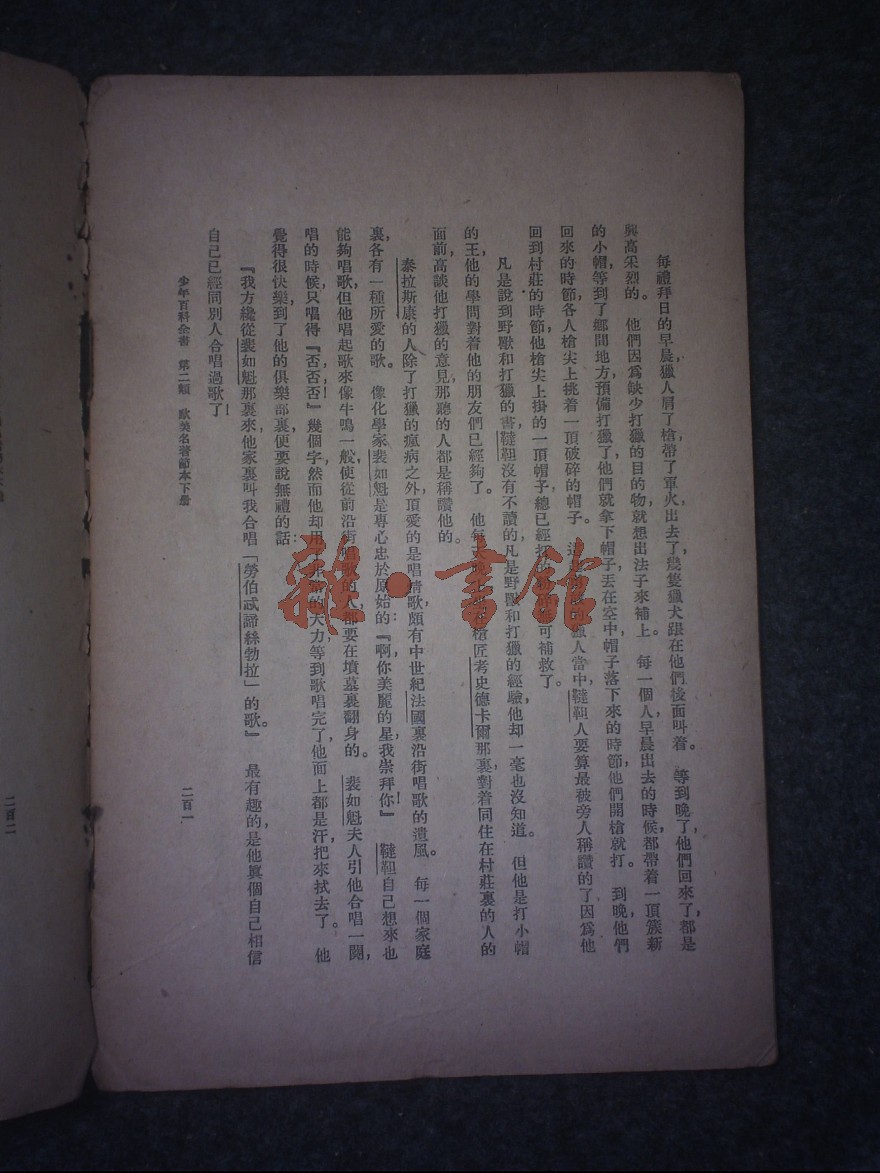 每禮拜日的早晨，獵人肩了槍，帶了軍火，出去了，幾隻獵犬跟在他們後面叫着。等到晚了，他們回來了，都是
興高采烈的。他們因爲缺少打獵的目的物，就想出法子來補上。每一個人早晨出去的時候，都帶着一頂簇新
的小帽，等到了鄉間地方，預備打獵了，他們就拿下帽子，丟在空中，帽子落下來的時節，他們開槍就打。到晚他們
回來的時節，各人槍尖上挑着一頂破碎的帽子。獵人當中，韃靼人要算最被旁人稱讚的了，因爲他
回到村莊的時節，他槍尖上掛的一頂帽子，總已經可補救了。
凡是說到野獸和打獵的書，韃靼沒有不讀的，凡是野獸和打獵的經驗，他却一毫也沒知道。但他是打小帽
的王，他的學問對着他的朋友們已經夠了。他每槍匠考史德卡爾那裏，對着同住在村莊裏的人的
面前，高談他打獵的意見，那聽的人都是稱讚他的。
泰拉斯康的人，除了打獵的瘋病之外，頂愛的是唱情歌，頗有中世紀法國裏沿街唱歌的遺風。每一個家庭
裏，各有一種所愛的歌。像化學家裴如魁是專心忠於原始的：『啊，你美麗的星，我崇拜你！』韃靼自己想來也
能夠唱歌，但他唱起歌來，像牛鳴一般，使從前沿街唱歌的人，都要在墳墓裏翻身的。裴如魁夫人引他合唱一闋，
唱的時候，只唱得『否，否，否！』幾個字，然而他却用了的大力，等到歌唱完了，他面上都是汗，把來拭去了。他
覺得很快樂，到了他的俱樂部裏，便要說無禮的話：
『我方纔從裴如魁那裏來，他家裏叫我合唱「勞伯忒諦絲勃拉」的歌。』最有趣的是他眞個自己相信
自己已經同別人合唱過歌了！
少年百科全書　第二類　歐美名著節本下册
二百一
二百二
雜·書館